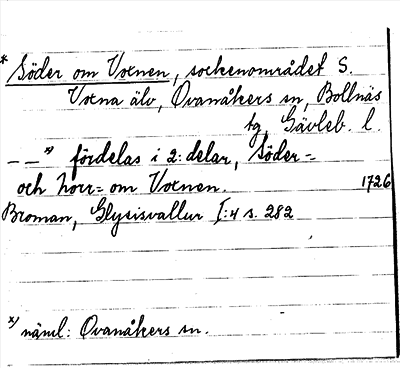 * Söder om Voxnen, sockenområdet S.
Voxna älv, Ovanåkers sn, Bollnäs
tg, Gävleb. l.
— — *) fördelas i 2: delar, Söder-=
och Norr= om Voxnen. 1726
Broman, Glysisvallur I:4 s. 282
*) näml: Ovanåkers sn.